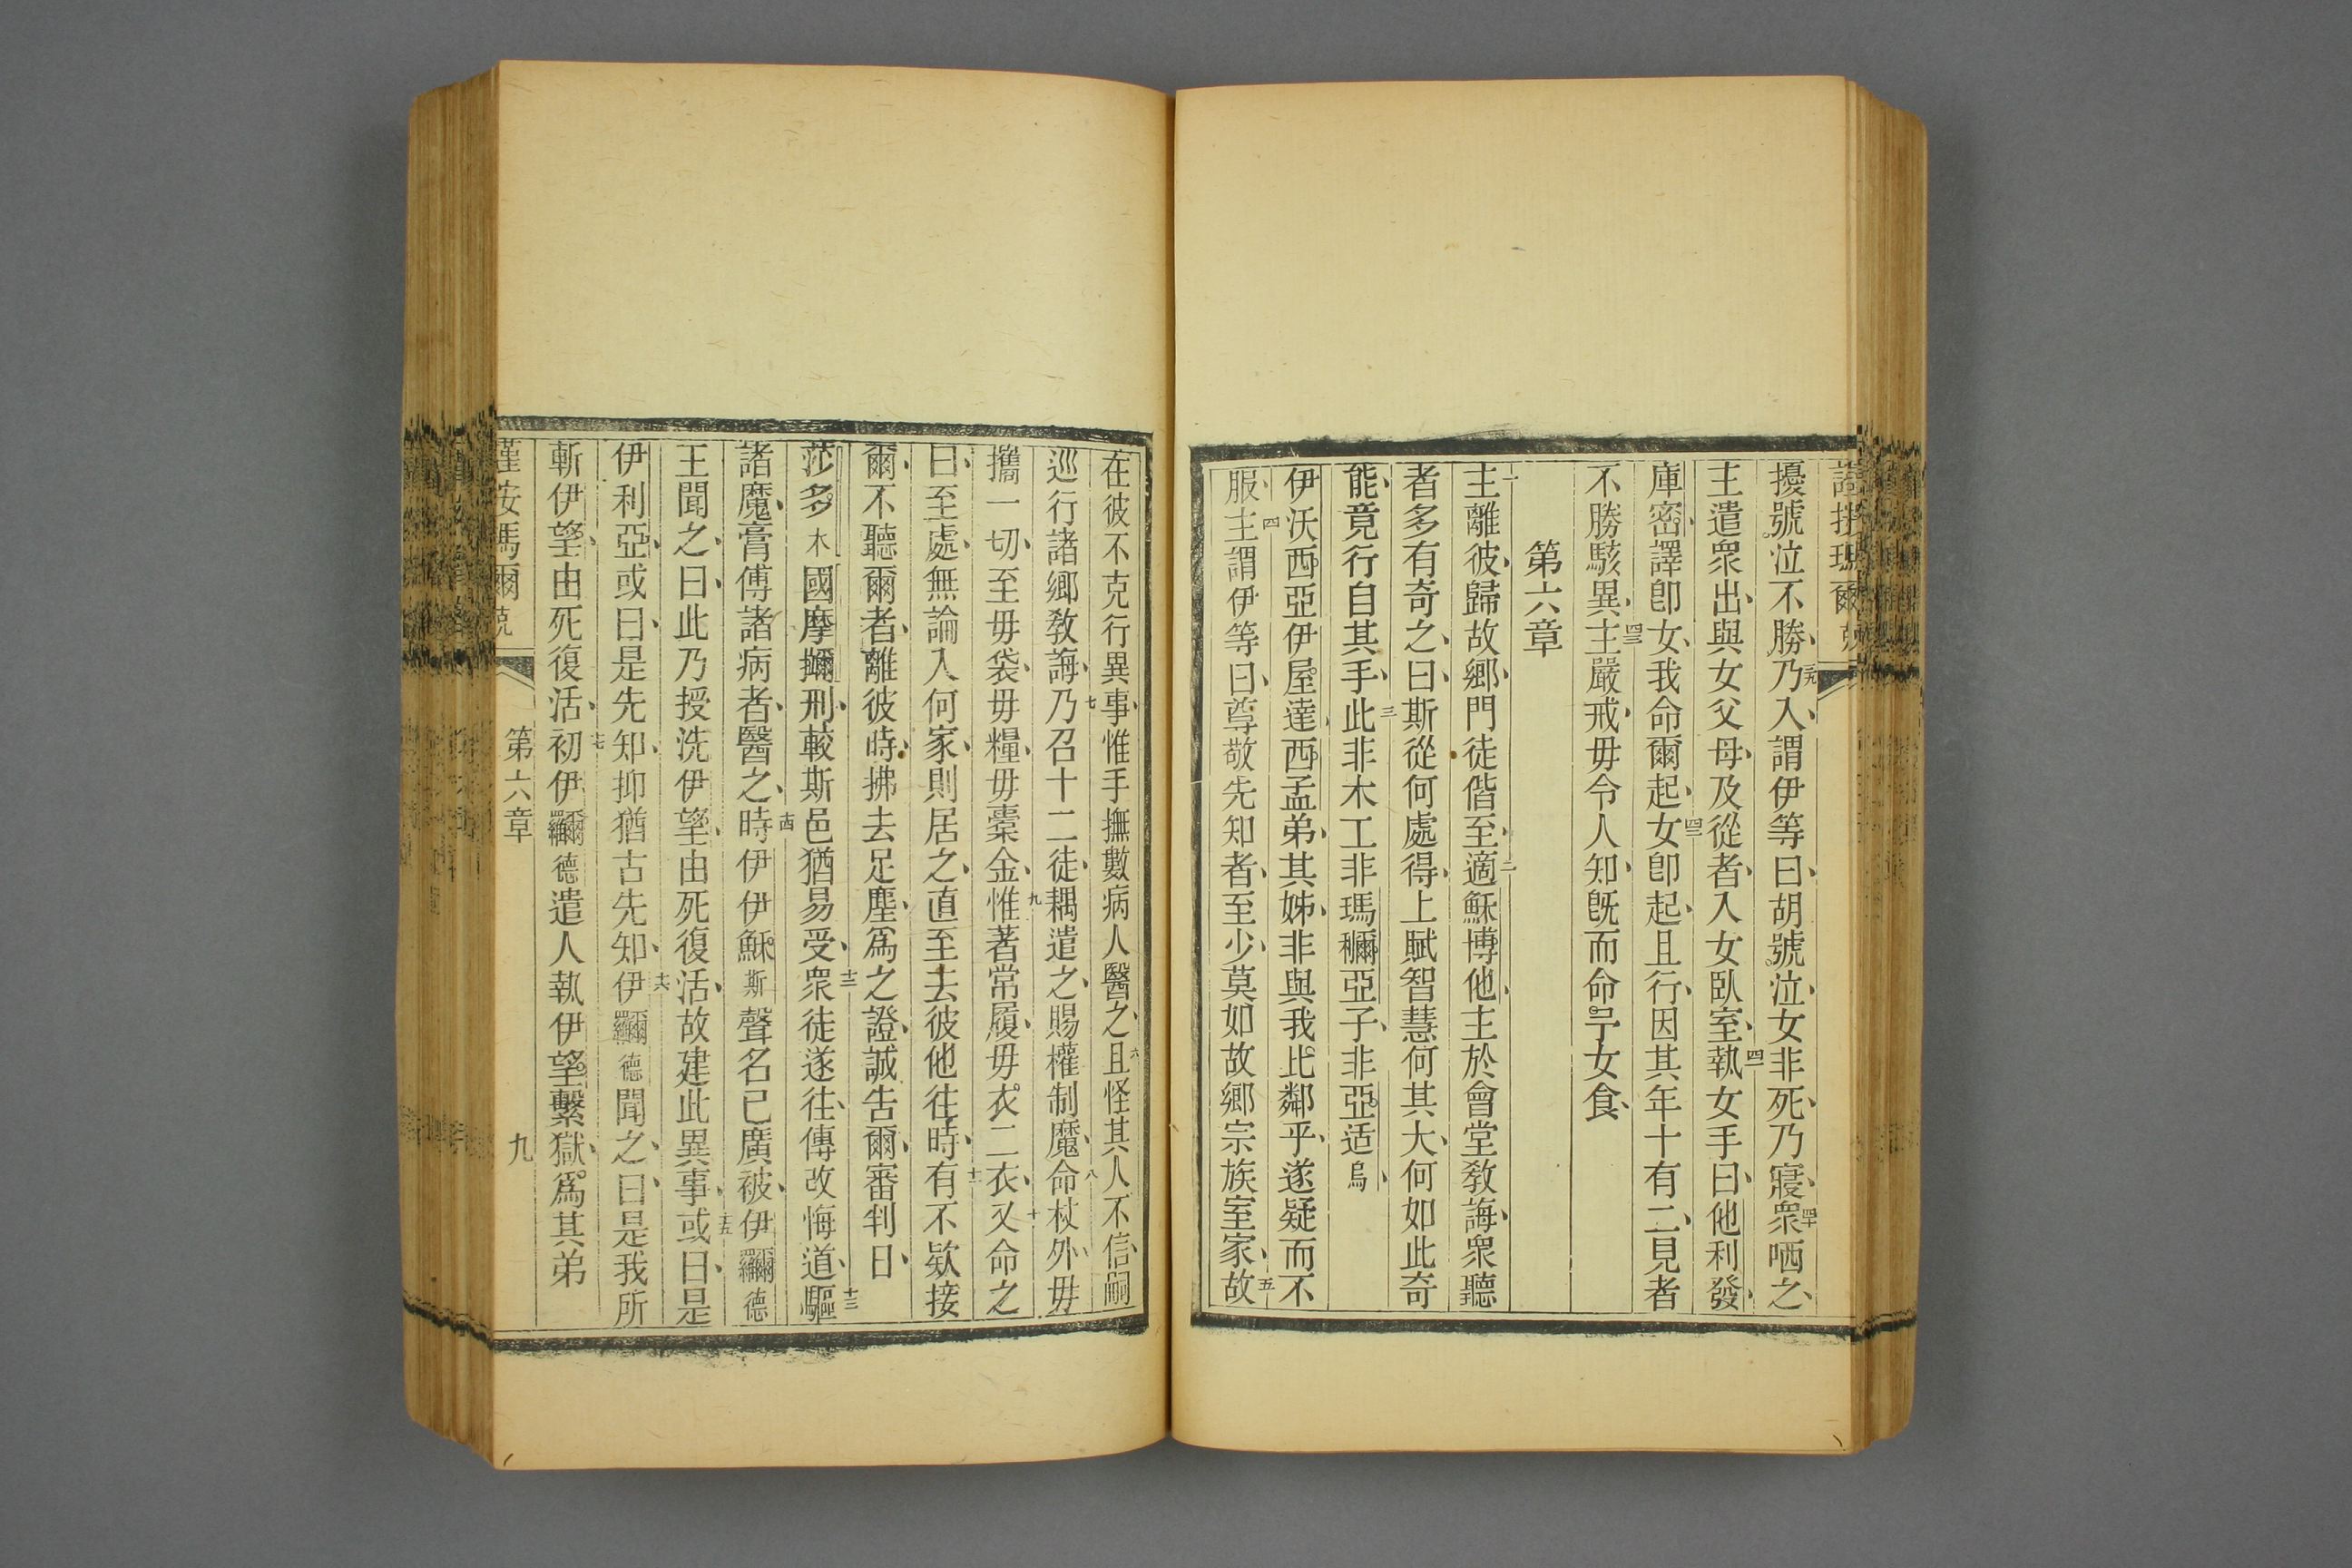 擾號泣不勝乃三九入謂伊等曰胡號泣女非死乃寢衆四十哂之
王遣衆出與女父母及從者入女臥室執四一女手曰他利發
庫密譯卽女我命爾起女四二卽起且行因其年十有二見者
不勝駭異主四三嚴戒毋令人知旣而命予女食
第六章
一主離彼歸故鄉門徒偕至適二穌博他主於會堂敎誨衆聽
者多有奇之曰斯從何處得上賦智慧何其大何如此奇
能竟行自其手此三非木工非瑪穪亞子非亞适烏
伊沃西亞伊屋達西孟弟其姊非與我比鄰乎遂疑而不
服主四謂伊等曰尊敬先知者至少莫如故鄉宗族室家故五
在彼不克行異事惟手撫數病人醫之且六怪其人不信嗣
巡行諸鄉敎誨乃七召十二徒耦遣之賜權制魔命八杖外毋
攜一切至毋袋毋糧毋橐金惟九著常履毋衣二衣又十命之
曰至處無論入何家則居之直至去彼他往時有十一不欵接
爾不聽爾者離彼時拂去足塵爲之證誠吿爾審判日
莎多木國摩搠刑較斯邑猶易受衆十二徒遂往傳改悔道驅十三
諸魔膏傅諸病者醫之時十四伊伊穌斯聲名已廣被伊德
王聞之曰此乃授洗伊望由死復活故建此異事或十五曰是
伊利亞或曰是先知抑猶古先知伊十六德聞之曰是我所
斬伊望由死復活初十七伊德遣人執伊望繫獄爲其弟
第六章
九